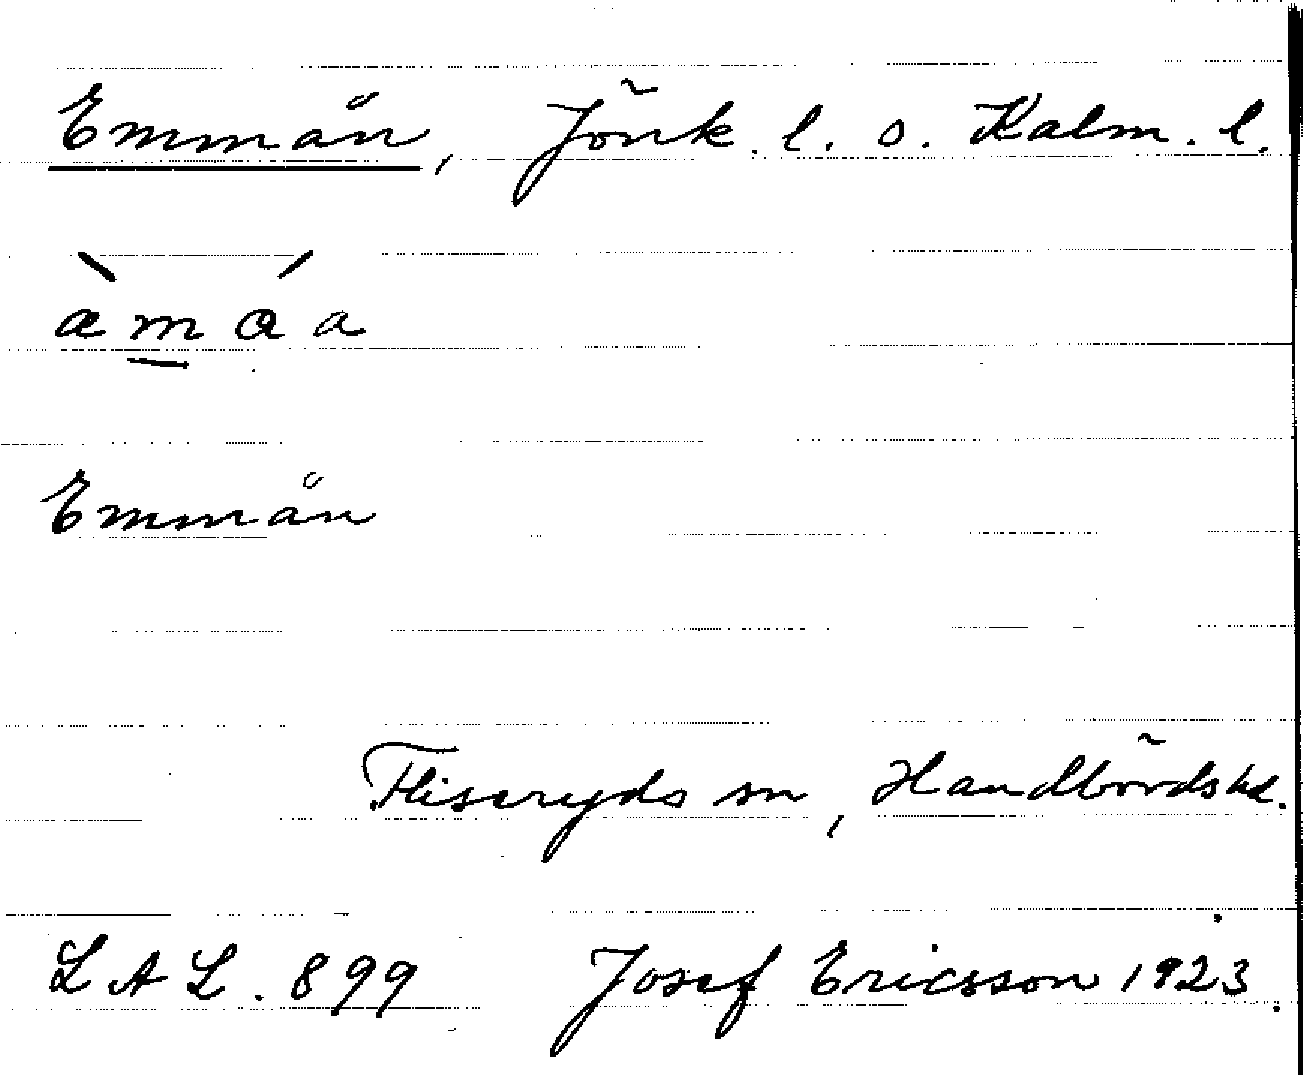 Emmån, Jönk. l. o. Kalm. l.
æ̀m̲ɑ́a
Emmån
Fliseryds sn, Handbördshd.
LAL. 899 Josef Ericsson 1923.